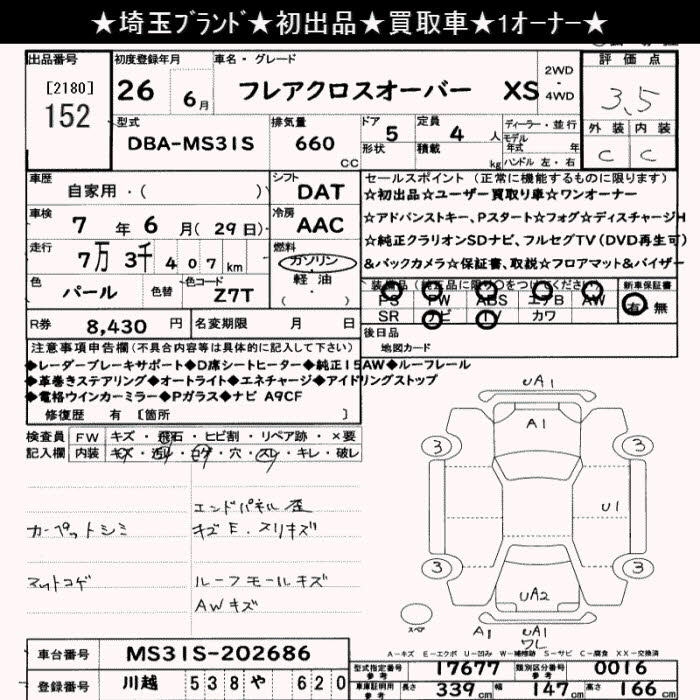 ★埼玉ブランド★初出品★買取車★1オーナー★
出品番号
[2180]
152
初度登録年月
26 6月
車名・グレード
フレアクロスオーバー XS
2WD
・
4WD
評価点
3.5
外装 内装
C C
型式
DBA-MS31S
排気量
660 CC
ドア 5
形状
定員 4 人
積載 kg
ディーラー・並行
モデル年式 年
ハンドル 左・右
車歴
自家用・( )
シフト
DAT
車検
7 年 6 月 (29日)
冷房
AAC
走行
7万 3千 407 km
燃料
ガソリン
・
軽油
・
( )
色
パール
色替
色コード
Z7T
R券 8,430 円
名変期限 月 日
セールスポイント (正常に機能するものに限ります)
☆初出品☆ユーザー買取り車☆ワンオーナー
☆アドバンストキー、Pスタート☆フォグ☆ディスチャージH
☆純正クラリオンSDナビ、フルセグTV(DVD再生可)
&バックカメラ☆保証書、取説☆フロアマット&バイザー
装備品 (純正品に限り○をつけてください)
PS PW ABS エアB AW
SR ナビ TV カワ
新車保証書
有・無
後日品
地図カード
注意事項申告欄(不具合内容等は具体的に記入して下さい)
◆レーダーブレーキサポート◆D席シートヒーター◆純正15AW◆ルーフレール
◆革巻きステアリング◆オートライト◆エネチャージ◆アイドリングストップ
◆電格ウインカーミラー◆Pガラス◆ナビ A9CF
修復歴 有 [箇所 ]
検査員
記入欄
FW キズ・飛石・ヒビ割・リペア跡・×要
内装 キズ・汚れ・コゲ・穴・スレ・キレ・破レ
エンドパネル歪
カーペットシミ
キズE.スリキズ
マットコゲ
ルーフモールキズ
AWキズ
UA1
A1
3
3
U1
3
3
UA2
スペア
A1
UA1
ワレ
A-キズ E-エクボ U-凹み W-補修跡 S-サビ C-腐食 XX-交換済
車台番号 MS31S-202686
登録番号 川越 538 や 620
型式指定番号 参考 17677
類別区分番号 参考 0016
車庫証明用 参考 長さ 339 cm 幅 147 cm 高さ 166 cm